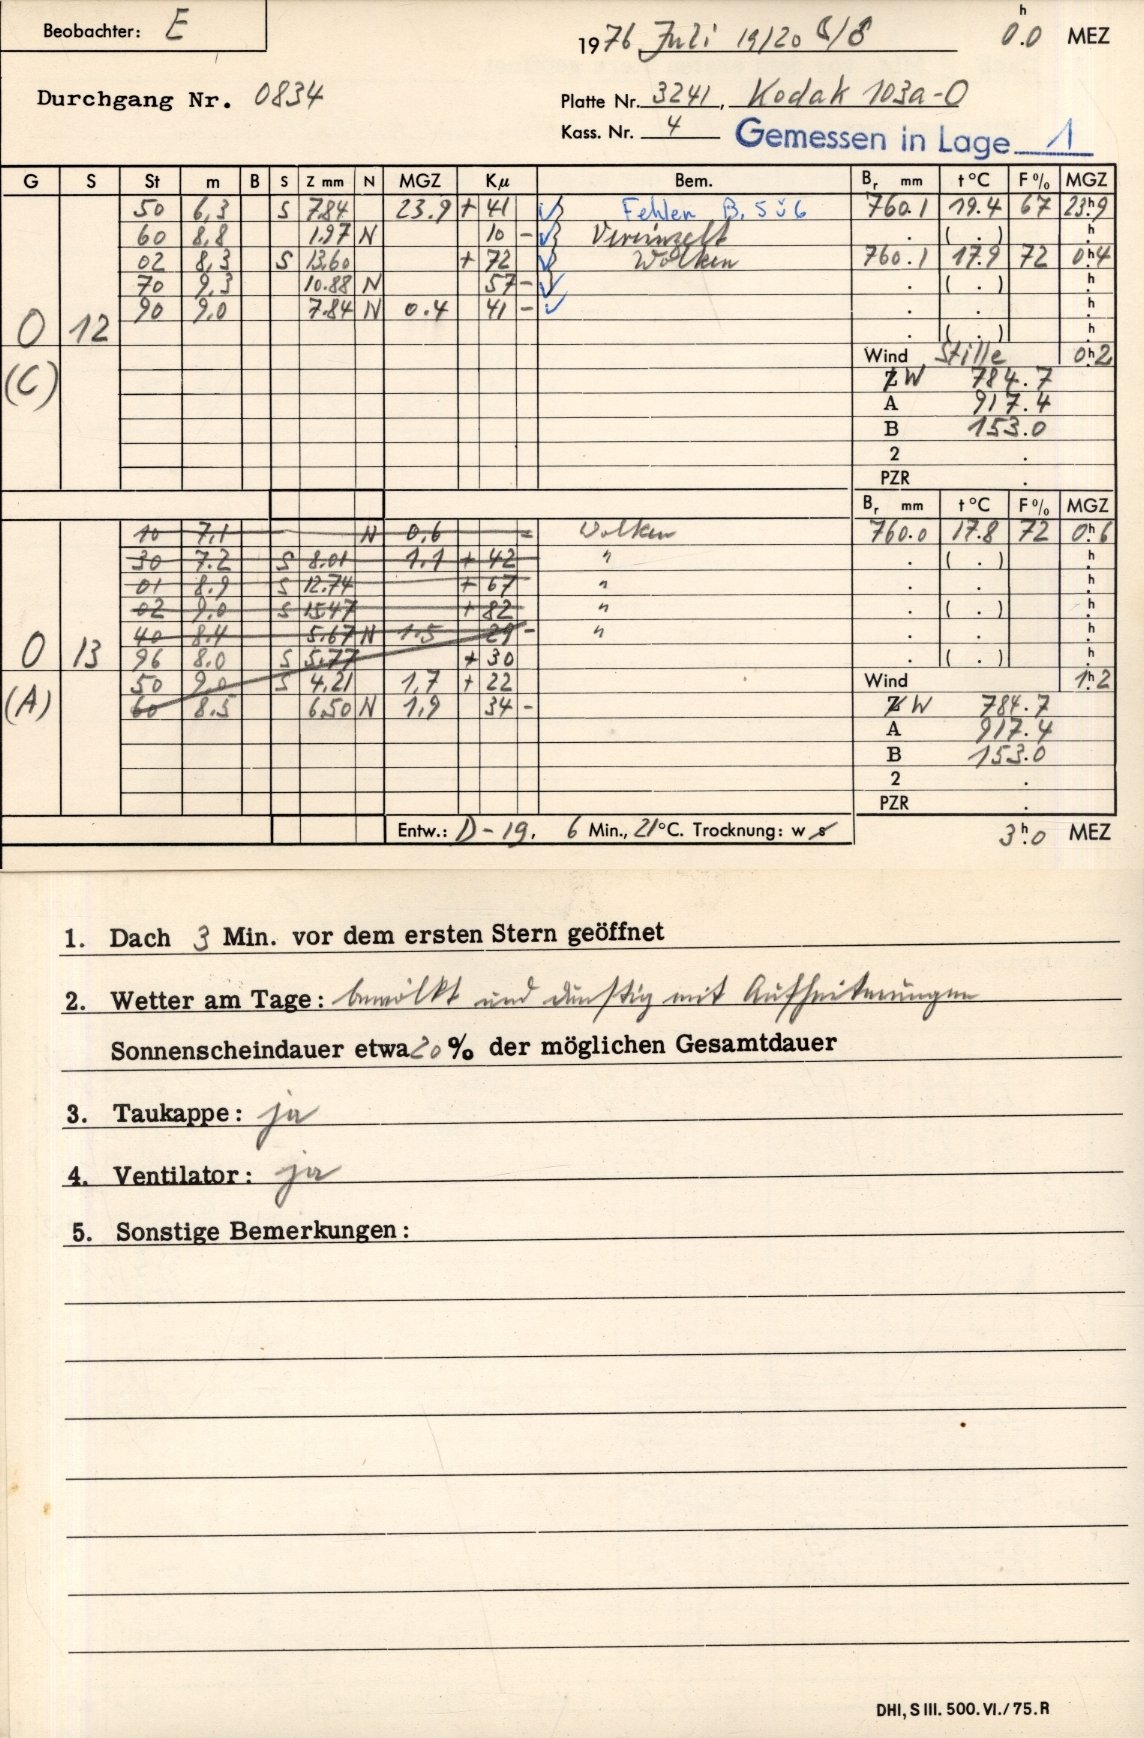 Beobachter: E
1976 Juli 19/20 0.0 h MEZ
Durchgang Nr. 0834
Platte Nr. 3241, Kodak 103a-O
Kass. Nr. 4 Gemessen in Lage 1
G S St m B S Z mm N MGZ Kμ Bem. Br mm t °C F % MGZ
50 6,3 S 7.84 23.9 + 41 Fehler B. 5 u 6 760.1 19.4 67 23h9
60 8.8 1.97 N 10 - Vereinzelt . ( . ) h
02 8,3 S 13.60 + 72 Wolken 760.1 17.9 72 0h4
70 9,3 10.88 N 57 - . ( . ) h
90 9,0 7.84 N 0.4 41 - . . h
0 12 . ( . ) h
Wind Stille 0h2
(C) Z W 784.7
A 917.4
B 153.0
2 .
PZR .
Br mm t °C F % MGZ
10 7.1 N 0.6 - Wolken 760.0 17.8 72 0h6
30 7.2 S 8.01 1.1 + 42 " . ( . ) h
01 8.9 S 12.74 + 67 " . . h
02 9.0 S 15.47 + 82 " . ( . ) h
40 8.4 5.67 N 1.5 29 - " . . h
0 13 96 8.0 S 5.77 + 30 . ( . ) h
50 9.0 S 4.21 1.7 + 22 Wind 1h2
(A) 60 8.5 6.50 N 1.9 34 - Z W 784.7
A 917.4
B 153.0
2 .
PZR .
Entw.: D-19, 6 Min., 21°C. Trocknung: w s 3h0 MEZ
1. Dach 3 Min. vor dem ersten Stern geöffnet
2. Wetter am Tage: bewölkt und dunstig mit Aufheiterungen
Sonnenscheindauer etwa 20% der möglichen Gesamtdauer
3. Taukappe: ja
4. Ventilator: ja
5. Sonstige Bemerkungen:
DHI, S III. 500. VI./75. R